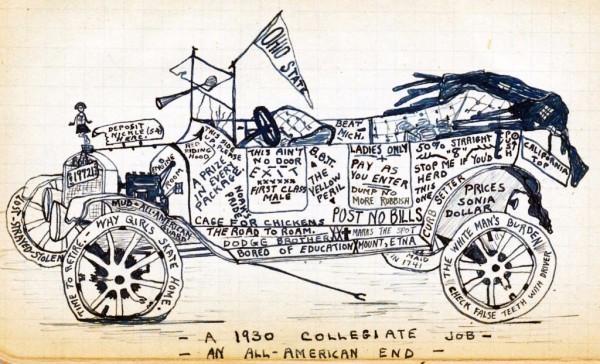 OHIO STATE
DEPOSIT
NICKLE (5¢)
HERE!
RED
RIDING
HOOD
THIS SIDE
UP PLEASE
A PRIZE
IN
EVERY
PACKAGE
NOAH'S
ARK
THIS AIN'T
NO DOOR
E
XXXXXX
FIRST CLASS
MALE
THE
YELLOW
PERIL
BEAT
MICH.
LADIES ONLY
PAY AS
YOU ENTER
DUMP NO
MORE RUBBISH
POST NO BILLS
50%
STRAIGHT
"8"
STOP ME IF YOU'D
HERD
THIS
ONE
CALIFORNIA
TOP
PRICES
SONIA
DOLLAR
CAGE FOR CHICKENS
THE ROAD TO ROAM.
DODGE BROTHER!
BORED OF EDUCATION
MARKS THE SPOT
MOUNT, ETNA
MAID
IN 1741
LOST-STRAYED-STOLEN
TIME TO RETIRE-
WHY GIRLS
HOME.
THE WHITE MAN'S BURDEN
CHECK FALSE TEETH WITH DRIVER
- A 1930 COLLEGIATE JOB -
- AN ALL-AMERICAN END -